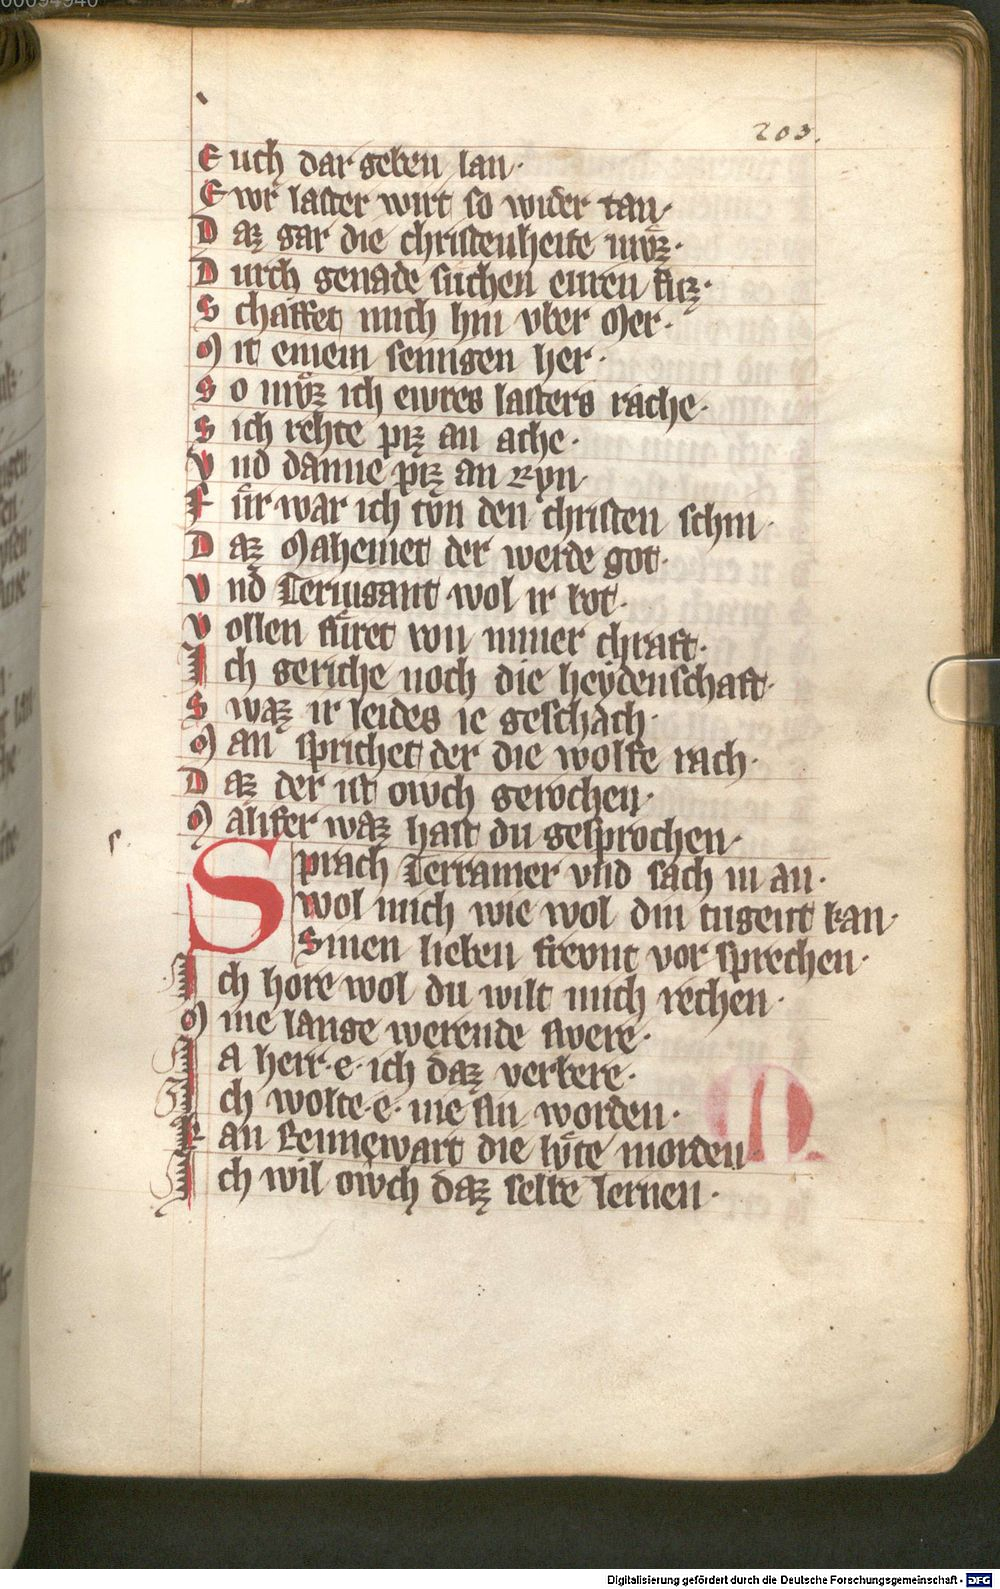 00094940
203.
E uch dar geben lan·
E wr laster wirt so wider tan·
D az gar die christenheite mvͦz·
D urch genade suchen euren fuͤz·
S chaffet mich hin vber Mer·
M it einem senngen her·
S o mvͦz ich ewres lasters rache·
S ich rehte piz an ache·
V nd danne piz an Ryn·
F uͤr war ich tvͦn den christen schin·
D az Mahemet der werde got·
V nd Teruigant wol ir bot·
V ollen fuͤret von miner chraft·
I ch geriche noch die heydenschaft·
S waz ir leides ie geschach·
M an sprichet der die wolfe rach·
D az der ist owch gerochen·
M alifer waz hast du gesprochen·
S prach Terramer vnd sach in an·
wol mich wie wol din tugent kan·
Sinen lieben frevnt vor sprechen·
I ch hore wol du wilt mich rechen·
M ine lange werende swere·
I a herr·e·ich daz verbere·
I ch wolte·e·nie sin worden·
K an Rennewart die lvͤte morden·
I ch wil owch daz selbe lernen·
Digitalisierung gefördert durch die Deutsche Forschungsgemeinschaft - DFG